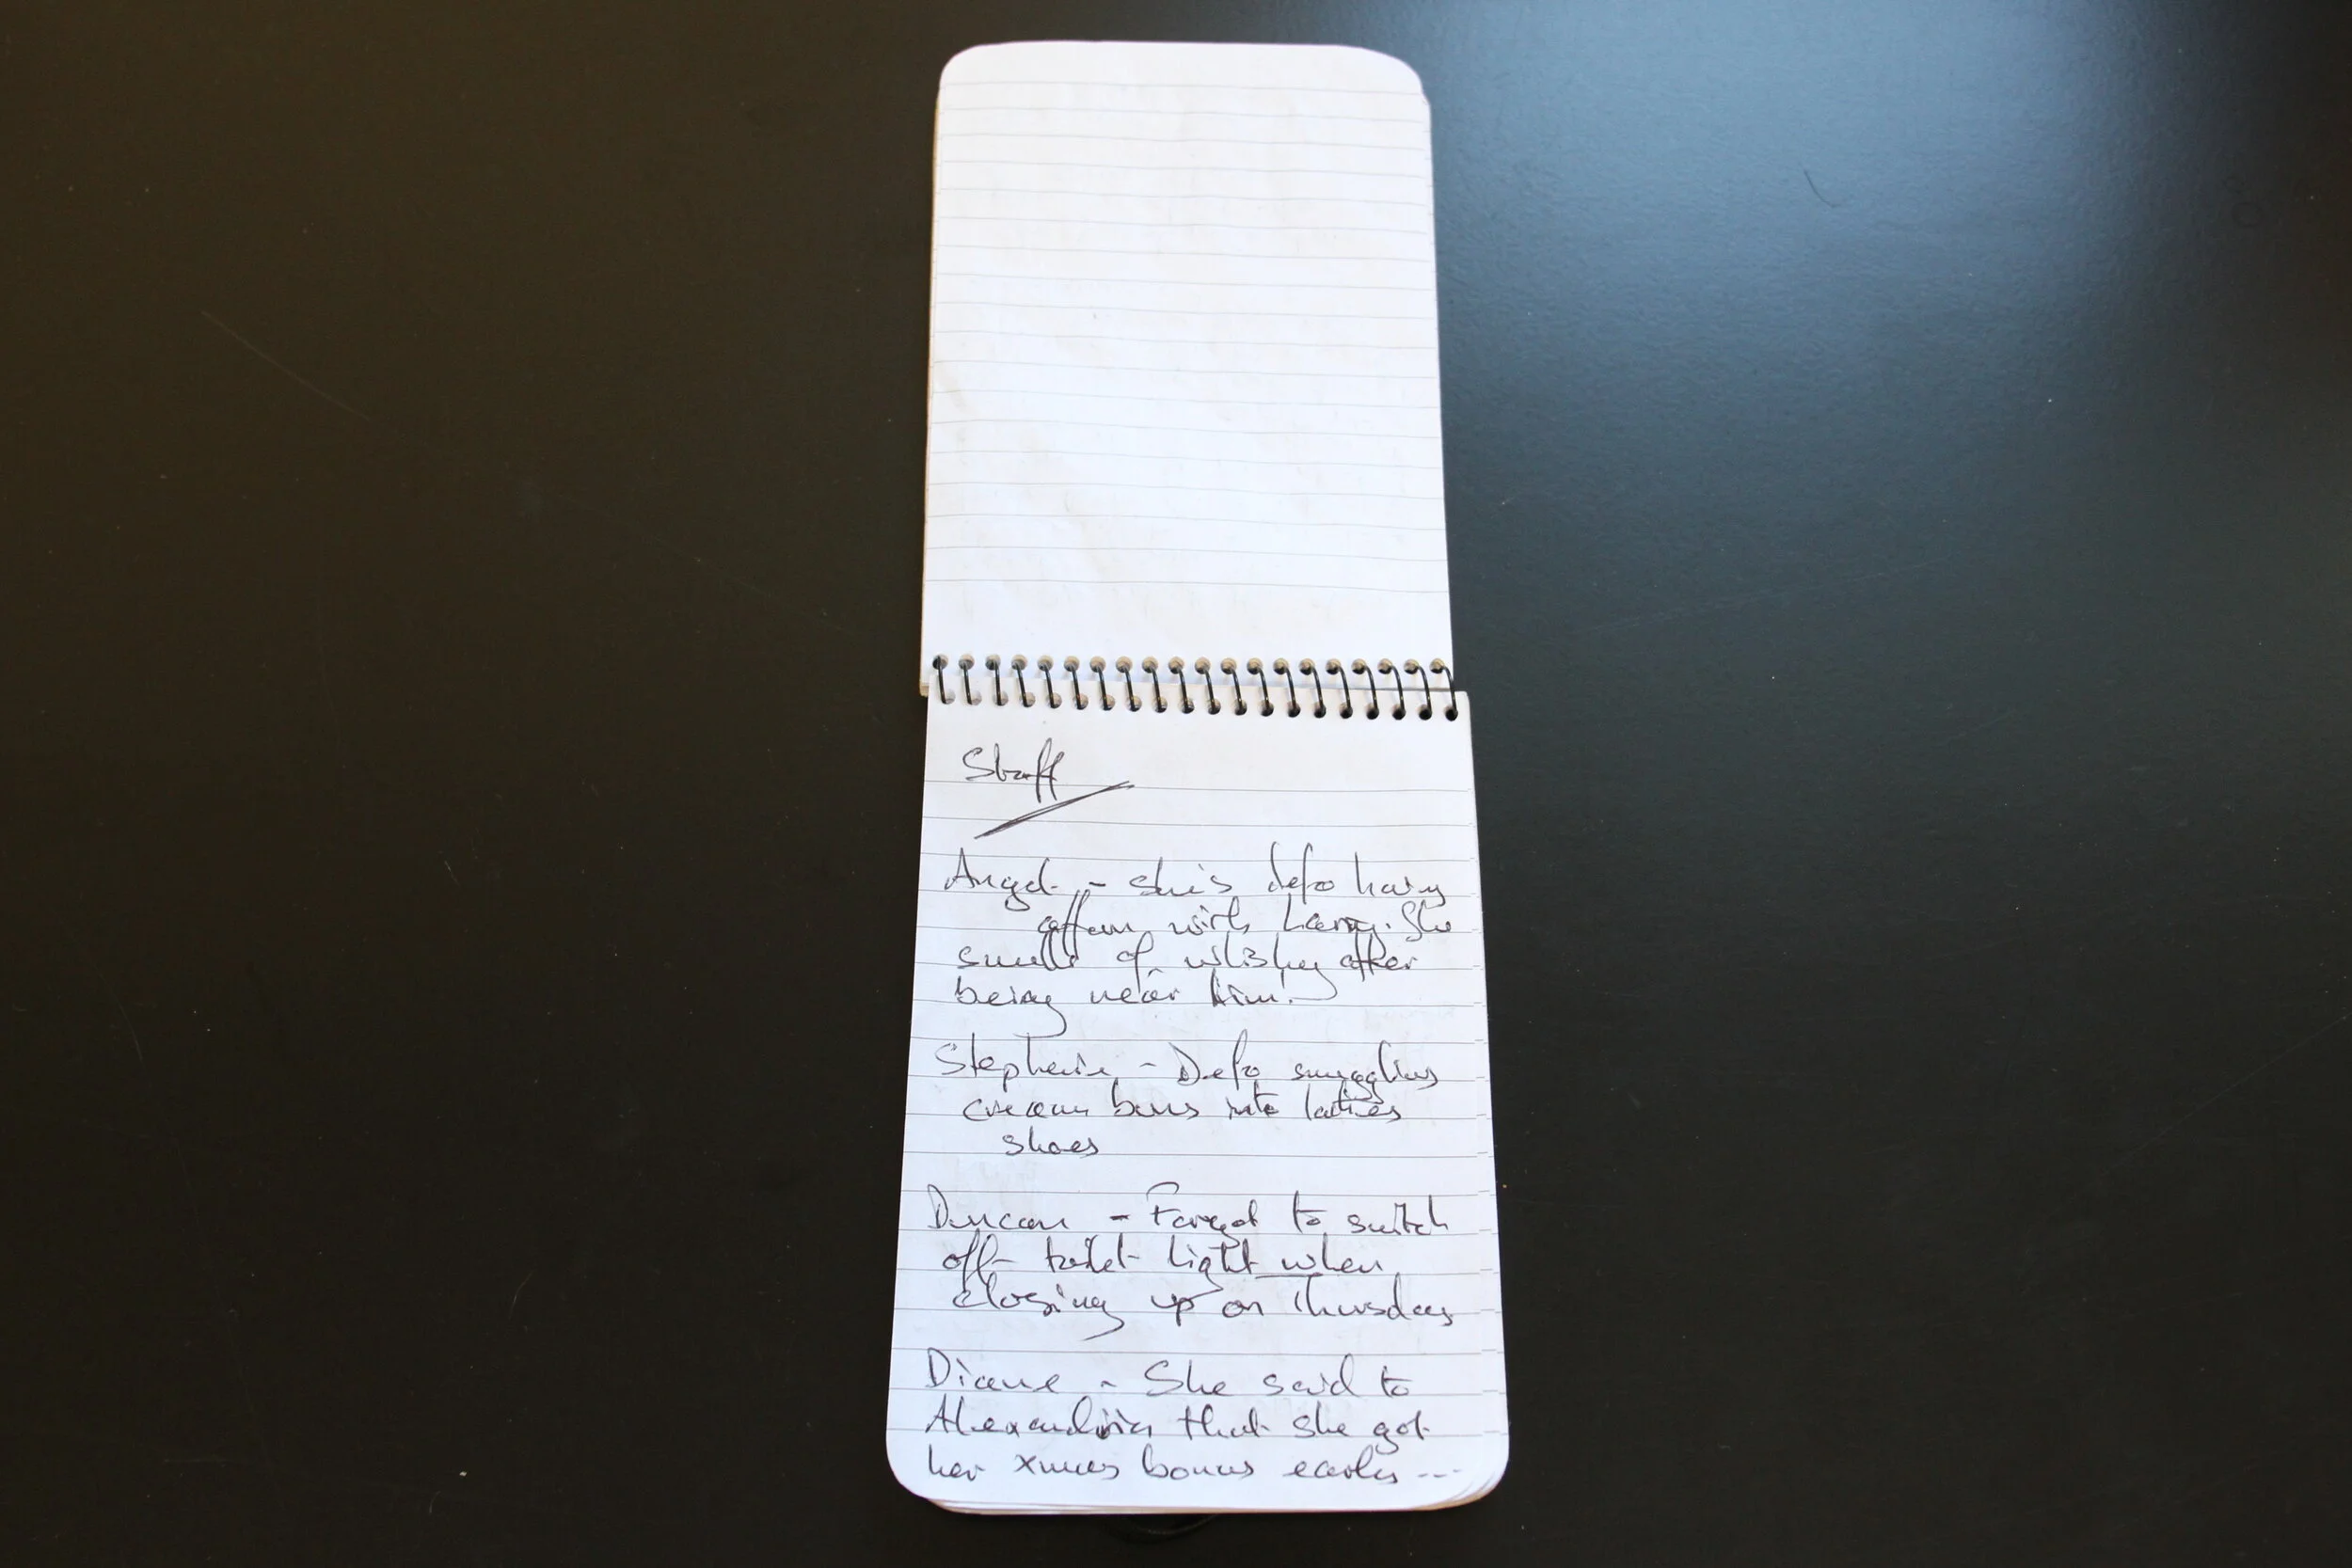 Staff
Angel - she's defo having
affair with Larry. She
smells of whiskey after
being near him!
Stephanie - Defo smuggling
cream buns into ladies
shoes
Duncan - Forgot to switch
off toilet light when
closing up on Thursday
Diane - She said to
Alexandria that she got
her xmas bonus early ---